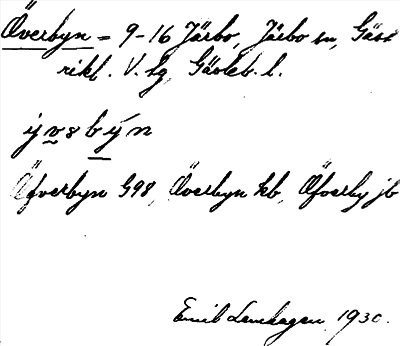 Överbyn = 9-16 Järbo, Järbo sn, Gäst
rikl. V. tg, Gävleb. l.
Öfverbyn G98, Överbyn kb, Öfverby jb
Emil Lenhagen 1930.